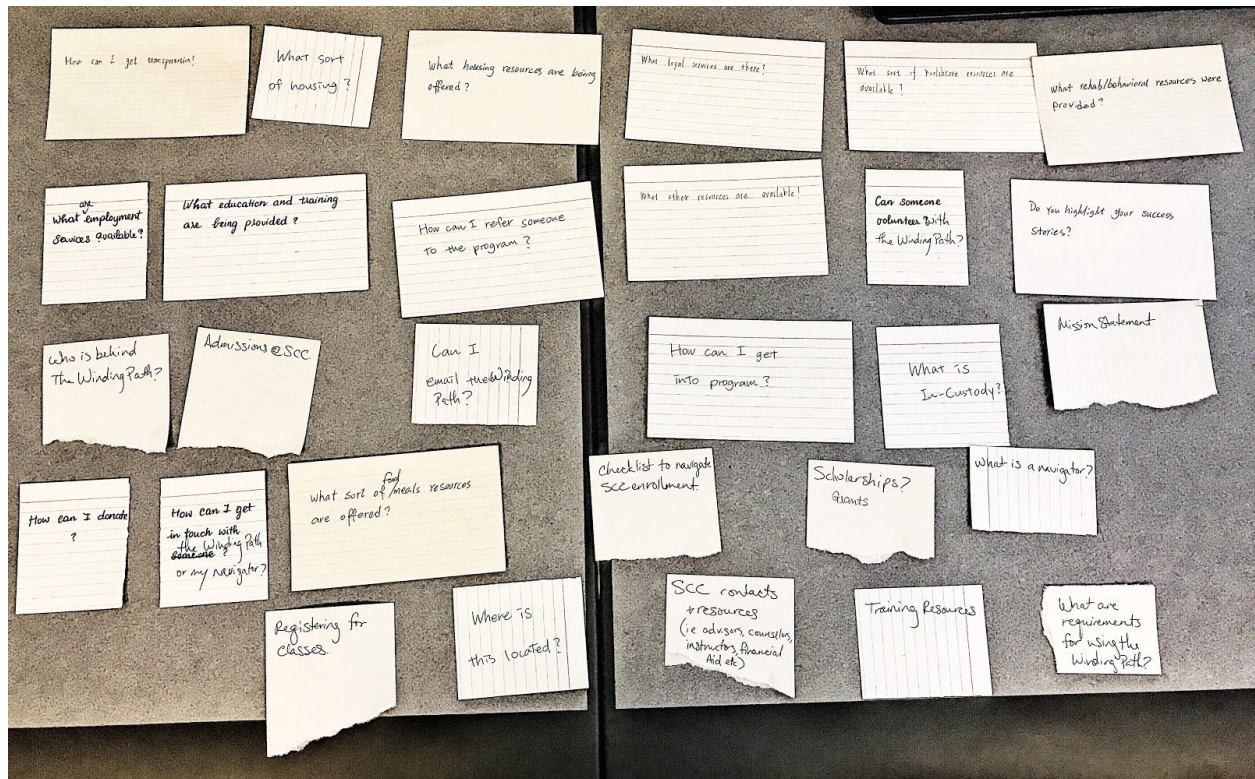 How can I get transportation?
What sort
of housing?
What housing resources are being
offered?
What legal services are there?
What sort of healthcare resources are
available?
What rehab/behavioral resources were
provided?
are
What employment
services available?
What education and training
are being provided?
How can I refer someone
to the program?
What other resources are available?
Can someone
volunteer with
the Winding Path?
Do you highlight your success
stories?
Who is behind
The Winding Path?
Admissions @ SCC
Can I
email the Winding
Path?
How can I get
into program?
What is
In-Custody?
Mission Statement
How can I donate
?
How can I get
in touch with
the Winding Path
someone?
or my navigator?
food
What sort of /meals resources
are offered?
Checklist to navigate
SCC enrollment.
Scholarships?
Grants
What is a navigator?
Registering for
classes.
Where is
this located?
SCC contacts
+ resources
(ie advisors, counselors,
instructors, financial
Aid etc)
Training Resources
What are
requirements
for using the
Winding Path?